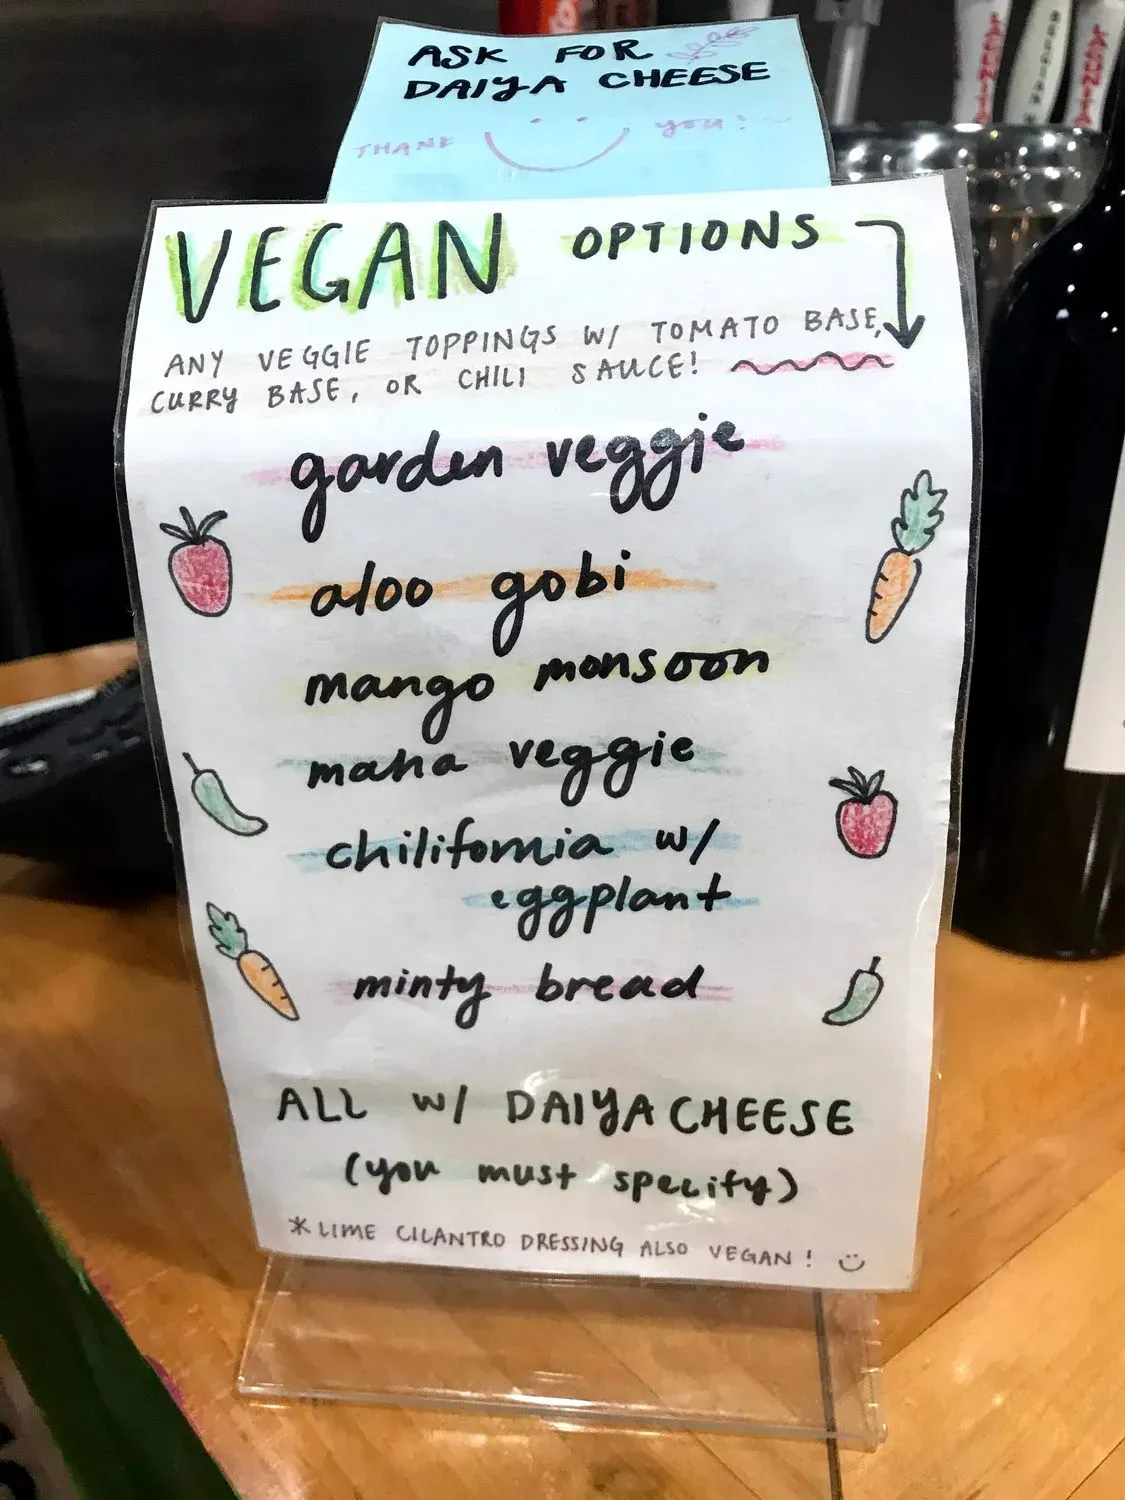 ASK FOR
DAIYA CHEESE
THANK you!
VEGAN OPTIONS
ANY VEGGIE TOPPINGS W/ TOMATO BASE,
CURRY BASE, OR CHILI SAUCE!
garden veggie
aloo gobi
mango monsoon
maha veggie
chilifornia w/
eggplant
minty bread
ALL w/ DAIYA CHEESE
(you must specify)
*LIME CILANTRO DRESSING ALSO VEGAN!
LAGUNITAS
LAGUNITAS